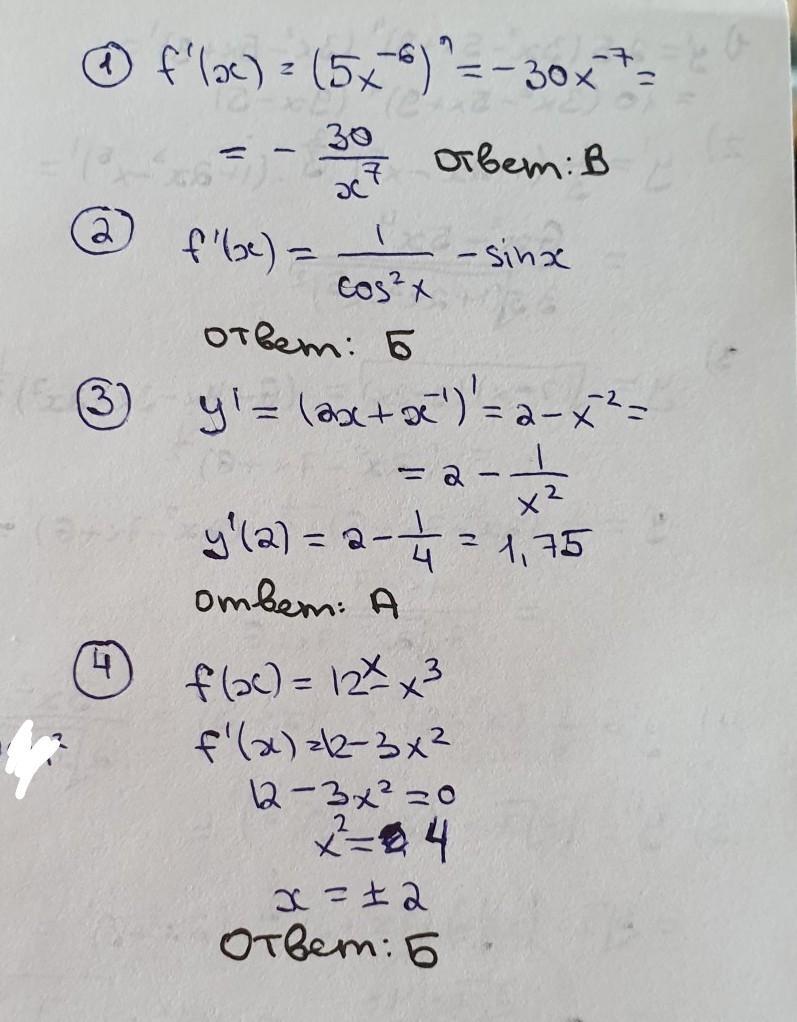 ① f'(x) = (5x⁻⁶)' = -30x⁻⁷ =
= - 30/x⁷ Ответ: В
② f'(x) = 1/cos²x - sinx
Ответ: Б
③ y' = (2x + x⁻¹)' = 2 - x⁻² =
= 2 - 1/x²
y'(2) = 2 - 1/4 = 1,75
Ответ: А
④ f(x) = 12x - x³
f'(x) = 12 - 3x²
12 - 3x² = 0
x² = 4
x = ± 2
Ответ: Б